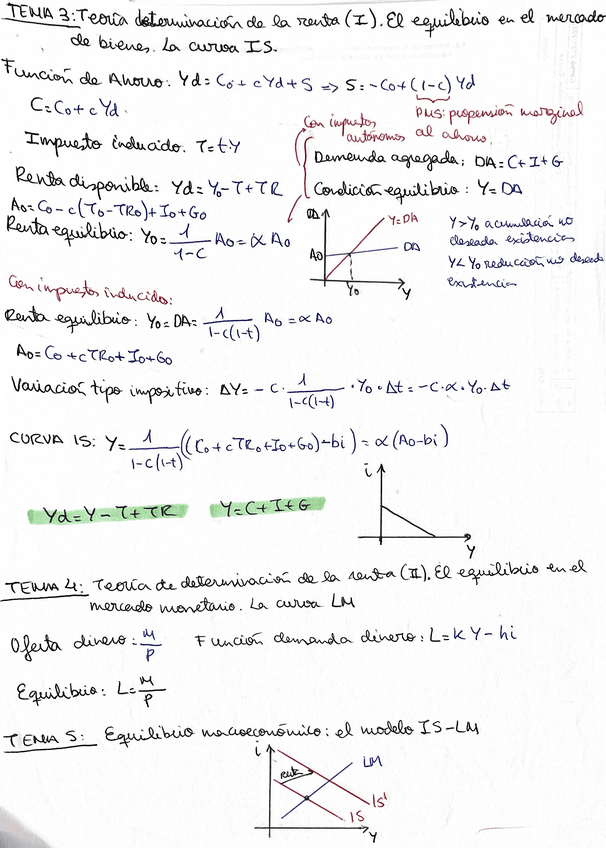 TEMA 3: Teoría determinación de la renta (I). El equilibrio en el mercado
de bienes. La curva IS.
Función de Ahorro: Yd = Co + cYd + S => S = -Co + (1-c) Yd
C = Co + cYd.
PMS: propensión marginal
al ahorro.
Con impuestos
autónomos
Impuesto inducido. T = tY
Demanda agregada: DA = C + I + G
Renta disponible: Yd = Yo - T + TR
Condición equilibrio: Y = DA
Ao = Co - c(To - TRo) + Io + Go
Renta equilibrio: Yo = 1/1-c Ao = α Ao
DA
Y=DA
DA
Ao
Yo
Y
Y>Yo acumulación no
deseada existencias
Y<Yo reducción no deseada
existencias
Con impuestos inducido:
Renta equilibrio: Yo = DA = 1/1-c(1-t) Ao = α Ao
Ao = Co + cTRo + Io + Go
Variación tipo impositivo: ΔY = - c · 1/1-c(1-t) · Yo · Δt = -c · α · Yo · Δt
CURVA IS: Y = 1/1-c(1-t) ((Co + cTRo + Io + Go) - bi) = α (Ao - bi)
i
Y
Yd = Y - T + TR Y = C + I + G
TEMA 4: Teoría de determinación de la renta (II). El equilibrio en el
mercado monetario. La curva LM
Oferta dinero: M/P Función demanda dinero: L = KY - hi
Equilibrio: L = M/P
TEMA 5: Equilibrio macroeconómico: el modelo IS-LM
i
LM
IS'
IS
Y